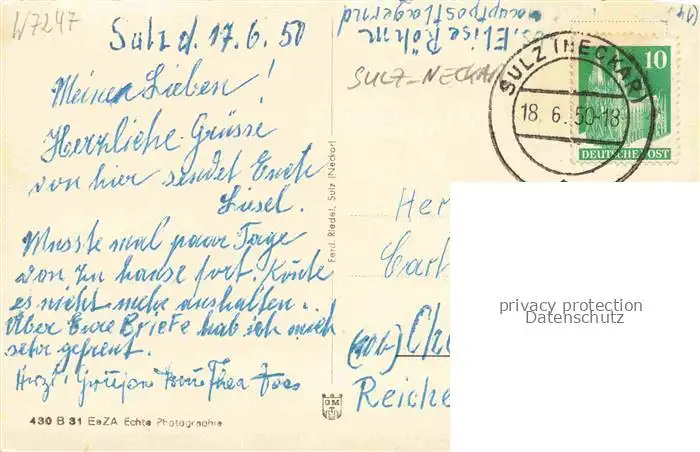 W7247
Sulz d. 17.6.50
Meinen Lieben!
Herzliche Grüsse
von hier sendet Euch
Liesel.
Musste mal paar Tage
von zu hause fort. Konte
es nicht mehr aushalten.
Über Eure Briefe hab ich mich
sehr gefreut.
Herzl.
430 B 31 EeZA Echte Photographie
Ferd. Riedel, Sulz (Neckar)
Elise Röhm
Hauptpostlagernd
SULZ-NECKAR
SULZ (NECKAR)
18.6.50-18
10
DEUTSCHE POST
Her
Carl
(10b) Che
Reiche
privacy protection
Datenschutz